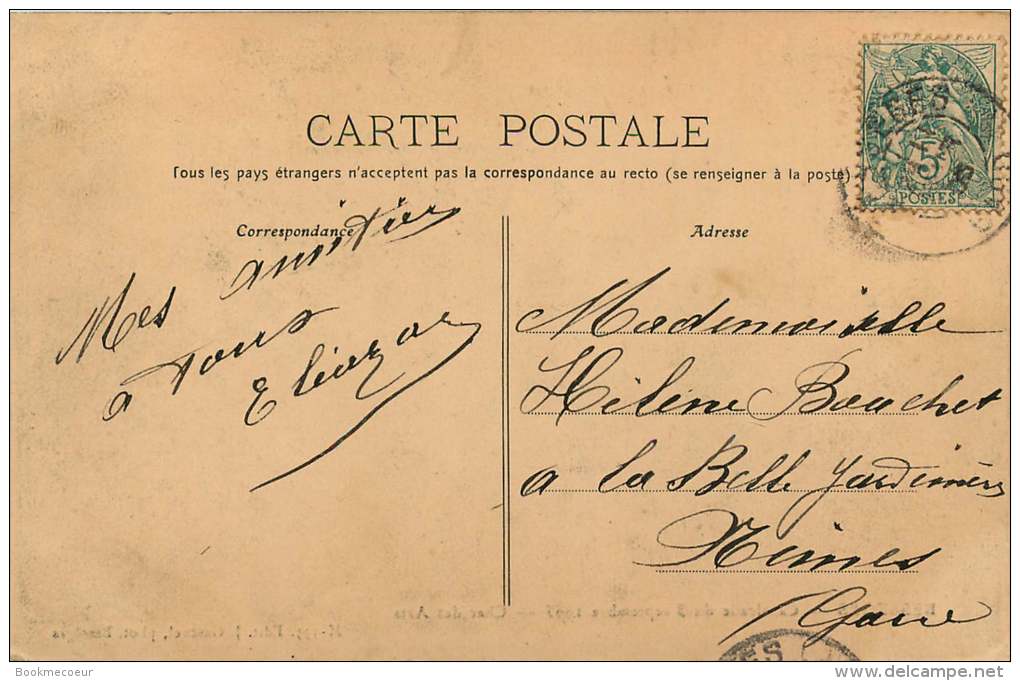 CARTE POSTALE
Tous les pays étrangers n'acceptent pas la correspondance au recto (se renseigner à la poste)
Correspondance
Adresse
5c
POSTES
Mes amitiés
à tous
Eliazar
Mademoiselle
Hélène Bouchet
a la Belle Jardinière
Nîmes
Gare
Bookmecoeur
delcampe.net